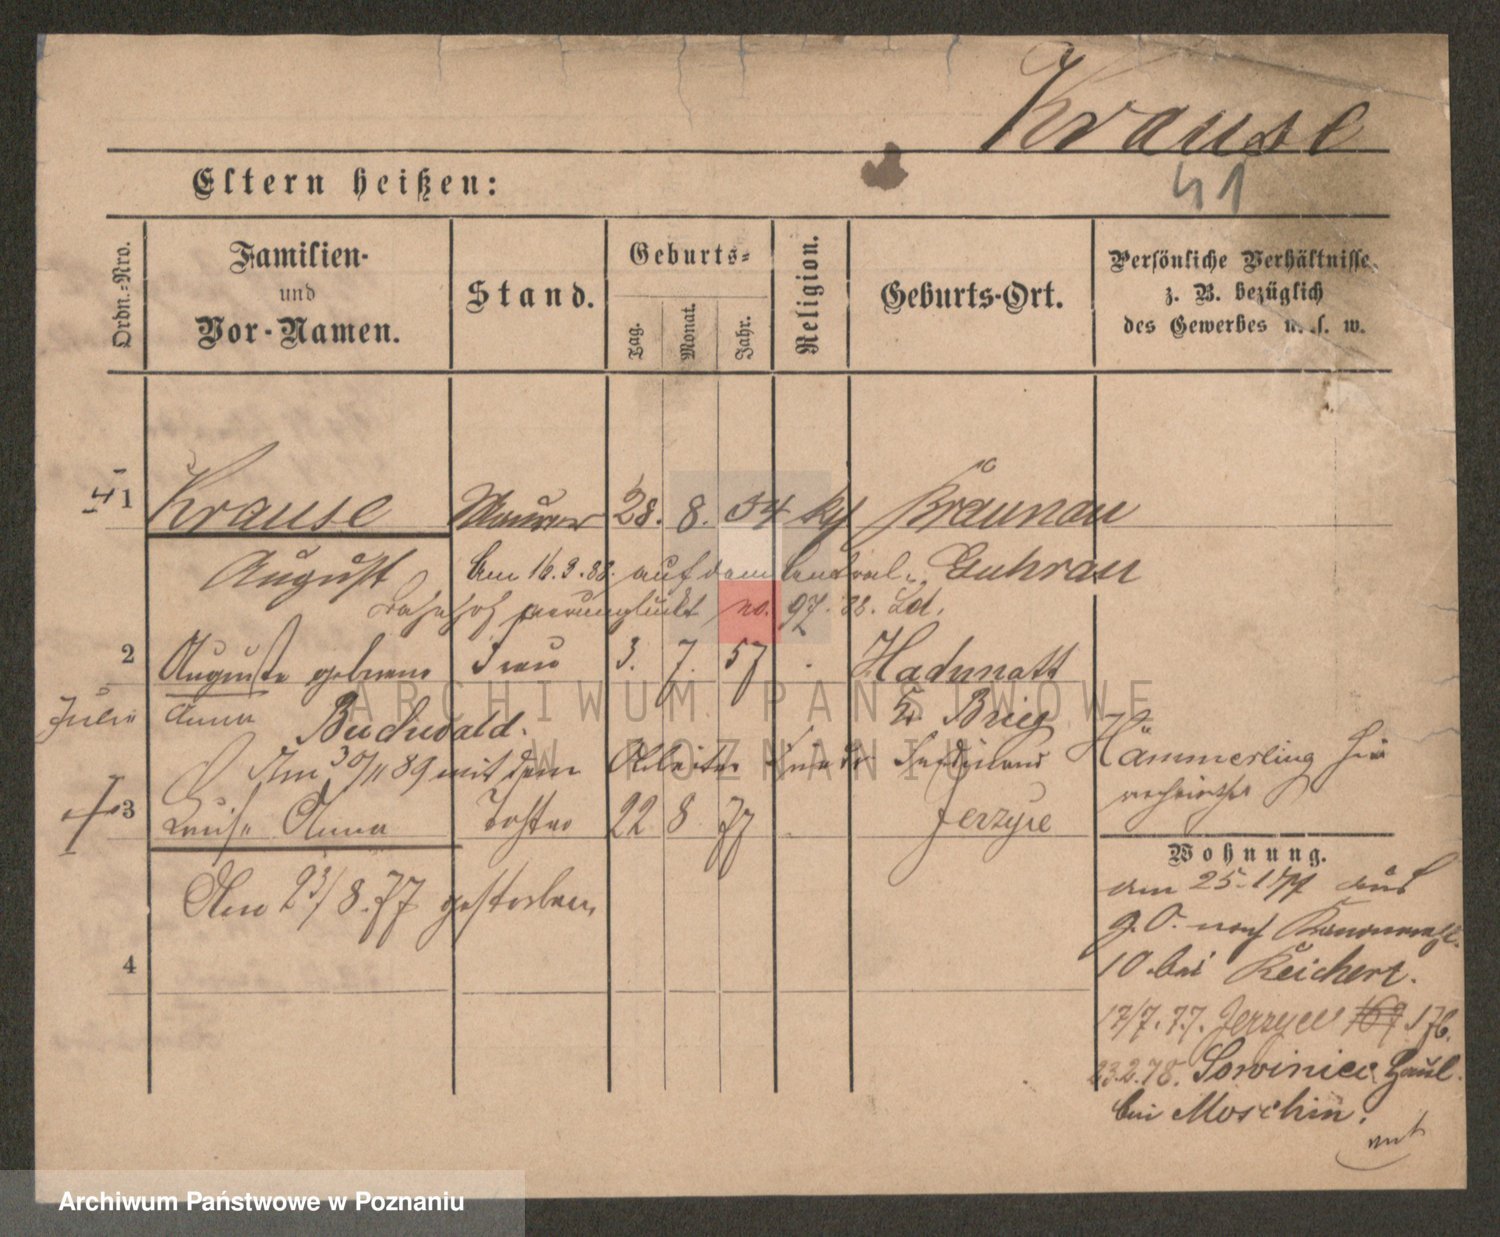 Krause
41
Eltern heißen:
Ordn.-Nro.
Familien-
und
Vor-Namen.
Stand.
Geburts-
Tag.
Monat.
Jahr.
Religion.
Geburts-Ort.
Persönliche Verhältnisse
z. B. bezüglich
des Gewerbes u. s. w.
1 Krause Maurer 28. 8. 54 Bräunau
August Am 16.9.88. auf dem Central- Guhrau
Bahnhof verunglückt no. 97. 88. Ld.
2 Auguste geborene Frau 3. 7. 57 Hadunatt
Julie Anna Buchwald. Kr. Brieg
Am 30/11 89 mit dem Arbeiter Ferdinand Hämmerling hier
verheirathet
3 Luise Anna Tochter 22 8 77 Jerzyce
Am 23/8.77 gestorben
4
Wohnung.
am 25.1 77 aus
g. O. nach Kanonenpl.
10 bei Reichert.
17/7.77. Jerzyce 167 176.
23.2.78. Sowiniec Haul.
bei Moschin.
ARCHIWUM PAŃSTWOWE
W POZNANIU
Archiwum Państwowe w Poznaniu